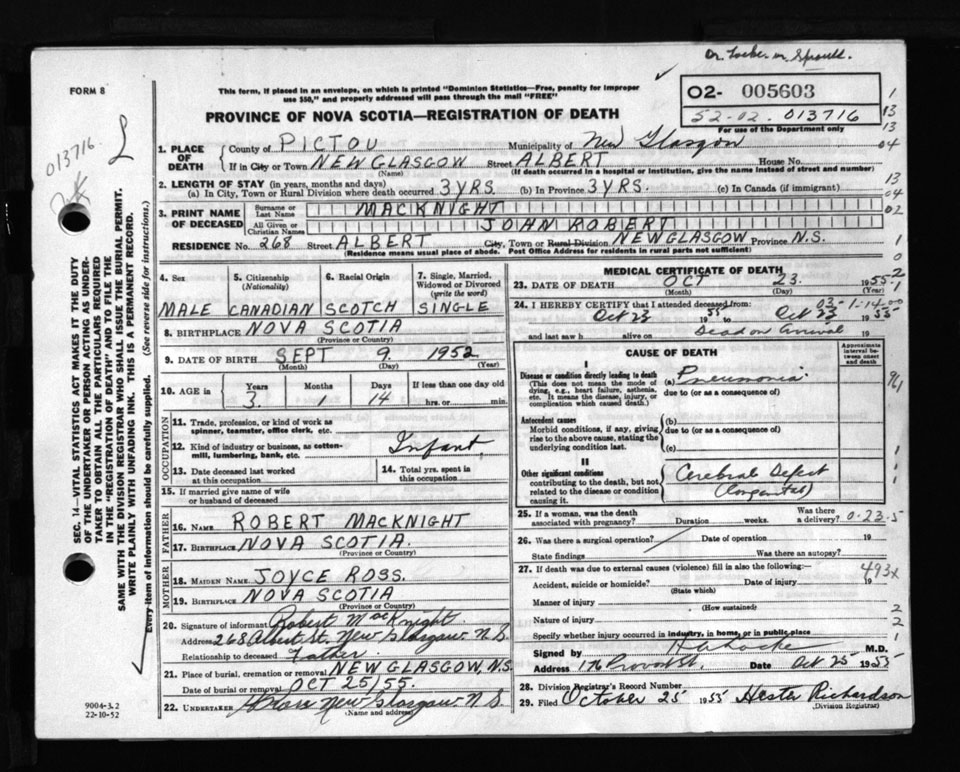 Dr. Locke or Sproull.
FORM 8
This form, if placed in an envelope, on which is printed "Dominion Statistics—Free, penalty for improper
use $50," and properly addressed will pass through the mail "FREE"
02- 005603
52-02. 013716
For use of the Department only
PROVINCE OF NOVA SCOTIA—REGISTRATION OF DEATH
013716.
1. PLACE OF DEATH
County of PICTOU Municipality of New Glasgow
If in City or Town NEW GLASGOW Street ALBERT House No.
(Name) (If death occurred in a hospital or institution, give the name instead of street and number)
2. LENGTH OF STAY (in years, months and days)
(a) In City, Town or Rural Division where death occurred 3 YRS (b) In Province 3 YRS. (c) In Canada (if immigrant)
3. PRINT NAME OF DECEASED
Surname or Last Name MACKNIGHT
All Given or Christian Names JOHN ROBERT
RESIDENCE No. 268 Street ALBERT City, Town or Rural Division NEW GLASGOW Province N.S.
(Residence means usual place of abode. Post Office Address for residents in rural parts not sufficient)
4. Sex
MALE
5. Citizenship (Nationality)
CANADIAN
6. Racial Origin
SCOTCH
7. Single, Married, Widowed or Divorced (write the word)
SINGLE
8. BIRTHPLACE NOVA SCOTIA
(Province or Country)
9. DATE OF BIRTH SEPT 9. 1952
(Month) (Day) (Year)
10. AGE in Years Months Days If less than one day old
3. 1 14 hrs. or min.
OCCUPATION
11. Trade, profession, or kind of work as spinner, teamster, office clerk, etc.
12. Kind of industry or business, as cotton-mill, lumbering, bank, etc. Infant
13. Date deceased last worked at this occupation
14. Total yrs. spent in this occupation
15. If married give name of wife or husband of deceased
FATHER
16. NAME ROBERT MACKNIGHT
17. BIRTHPLACE NOVA SCOTIA.
(Province or Country)
MOTHER
18. MAIDEN NAME JOYCE ROSS.
19. BIRTHPLACE NOVA SCOTIA
(Province or Country)
20. Signature of informant Robert MacKnight.
Address 268 Albert St. New Glasgow N.S.
Relationship to deceased Father.
21. Place of burial, cremation or removal NEW GLASGOW, N.S.
Date of burial or removal OCT 25/55.
22. UNDERTAKER New Glasgow N.S.
(Name and address)
MEDICAL CERTIFICATE OF DEATH
23. DATE OF DEATH OCT 23. 1955
(Month) (Day) (Year)
03-1-14-00
24. I HEREBY CERTIFY that I attended deceased from:
Oct 23 1955 to Oct 23 1955
and last saw h alive on Dead on arrival 19
CAUSE OF DEATH
Approximate interval between onset and death
I
Disease or condition directly leading to death (a) Pneumonia
(This does not mean the mode of dying, e.g., heart failure, asthenia, etc. It means the disease, injury, or complication which caused death.)
due to (or as a consequence of)
Antecedent causes (b)
Morbid conditions, if any, giving rise to the above cause, stating the underlying condition last.
due to (or as a consequence of)
(c)
II
Other significant conditions contributing to the death, but not related to the disease or condition causing it.
Cerebral Defect
(Congenital)
25. If a woman, was the death associated with pregnancy? Duration weeks. Was there a delivery? 0-23-5
26. Was there a surgical operation? Date of operation 19
State findings Was there an autopsy?
27. If death was due to external causes (violence) fill in also the following:— 493x
Accident, suicide or homicide? Date of injury 19
(State which)
Manner of injury
(How sustained)
Nature of injury
Specify whether injury occurred in industry, in home, or in public place
Signed by H A Locke M.D.
Address 176 Provost St. Date Oct 25 1955
28. Division Registrar's Record Number
29. Filed October 25 1955 Hester Richardson
(Division Registrar)
SEC. 14—VITAL STATISTICS ACT MAKES IT THE DUTY
OF THE UNDERTAKER OR PERSON ACTING AS UNDER-
TAKER TO OBTAIN ALL THE PARTICULARS REQUIRED
IN THE "REGISTRATION OF DEATH" AND TO FILE THE
SAME WITH THE DIVISION REGISTRAR WHO SHALL ISSUE THE BURIAL PERMIT.
WRITE PLAINLY WITH UNFADING INK. THIS IS A PERMANENT RECORD.
Every item of Information should be carefully supplied. (See reverse side for instructions.)
9004-3.2
22-10-52
1
13
13
04
13
04
02
1
0
2
1
1
1
1
2
2
1